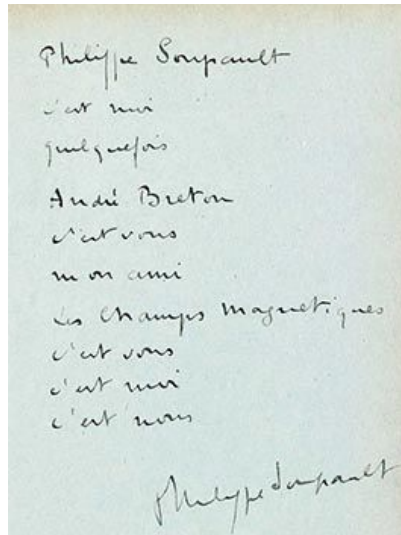 Philippe Soupault
c'est moi
quelquefois
André Breton
c'est vous
mon ami
Les Champs Magnétiques
c'est vous
c'est moi
c'est nous
Philippe Soupault